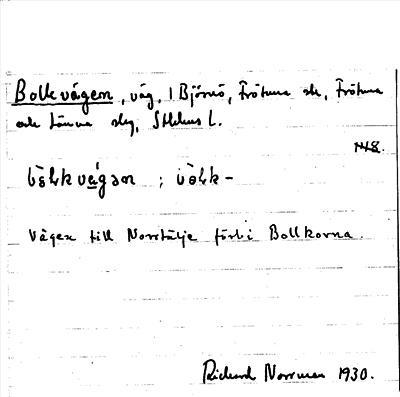 Bolkvägen, väg, i Björnö, Frötuna sn, Frötuna
och Länna skg, Sthlms L.
148.
Vägen till Norrtälje förbi Bolkarna.
Richard Norrman 1930.